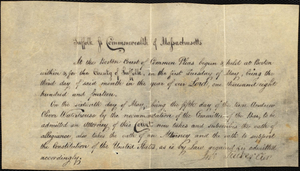 Suffolk ss Commonwealth of Massachusetts
At the Boston Court of Common Pleas begun & held at Boston
within & for the County of Suffolk, on the first Tuesday of May, being the
third day of said month in the year of our Lord, one thousand eight
hundred and fourteen.
On the sixteenth day of May, being the fifth day of the term Andrew
Oliver Waterhouse by the recommendation of the Committee of the Bar, to be
admitted an Attorney of this Court, came takes and subscribes the oath of
allegiance also takes the oath of an Attorney and the oath to support
the Constitution of the United States, as is by law required is admitted
accordingly.